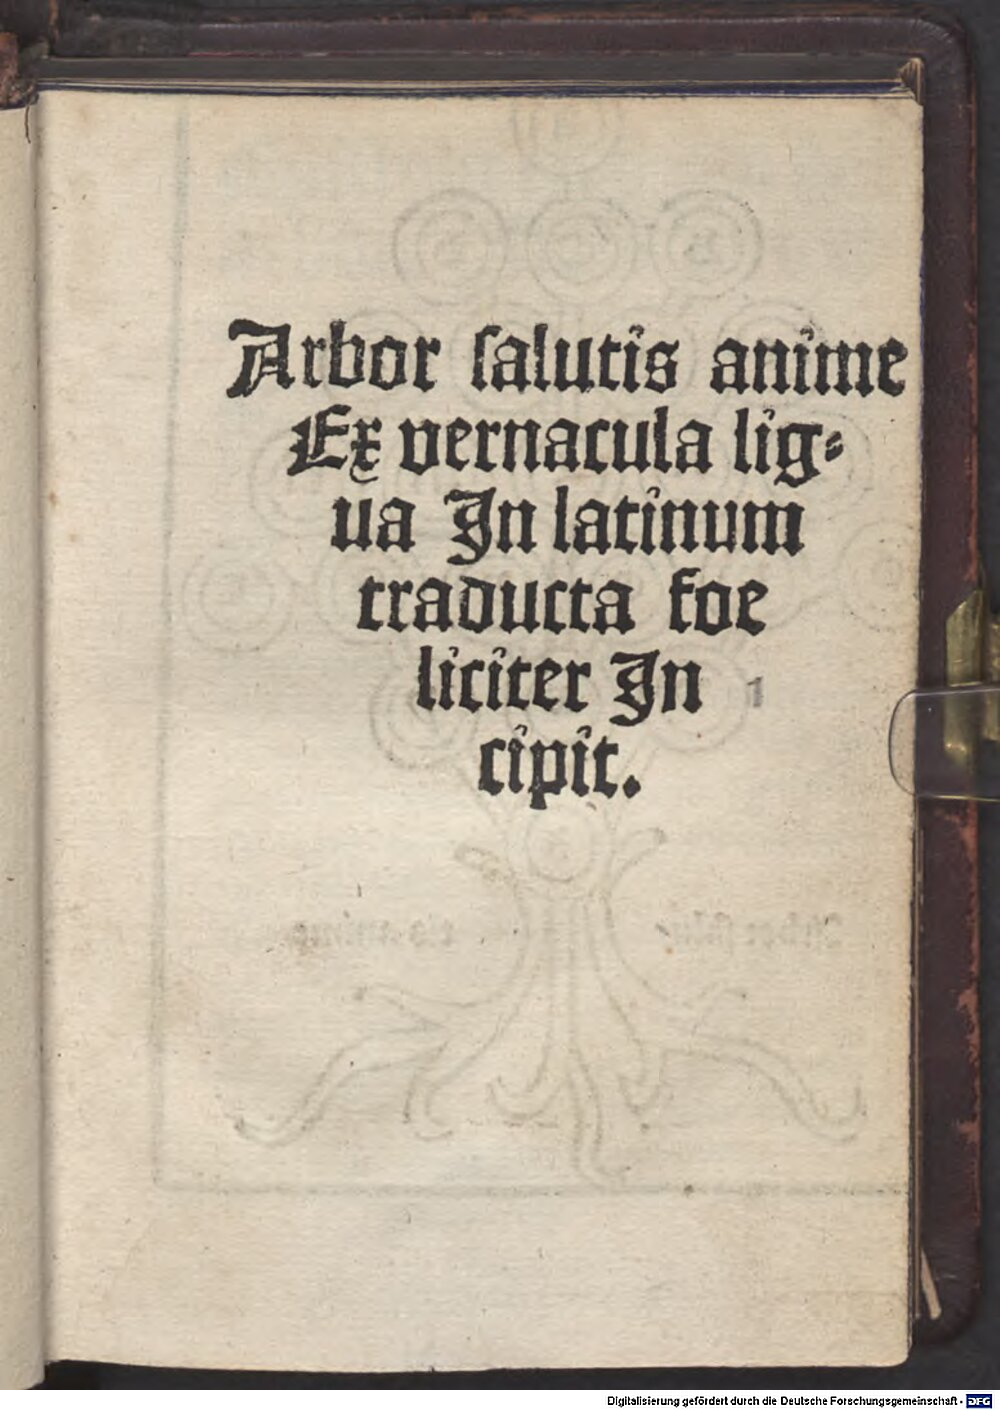 Arbor salutis anime
Ex vernacula lig-
ua In latinum
traducta foe
liciter In
cipit.
1
Digitalisierung gefördert durch die Deutsche Forschungsgemeinschaft - DFG